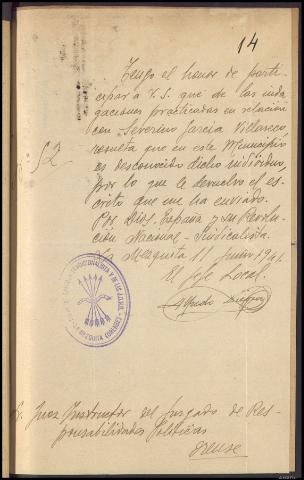 14
Tengo el honor de parti-
cipar a V.S. que de las inda
gaciones practicadas en relación
con Severino Garcia Villanco,
52
resulta que en este Municipio
es desconocido dicho individuo,
por lo que le devuelvo el es-
crito que me ha enviado.
Por Dios, España y su Revolu-
ción Nacional-Sindicalista.
La Mezquita 11 Junio 1941.
El Jefe Local.
Alfredo
Sr. Juez Instructor del Juzgado de Res-
ponsabilidades Politicas
Orense